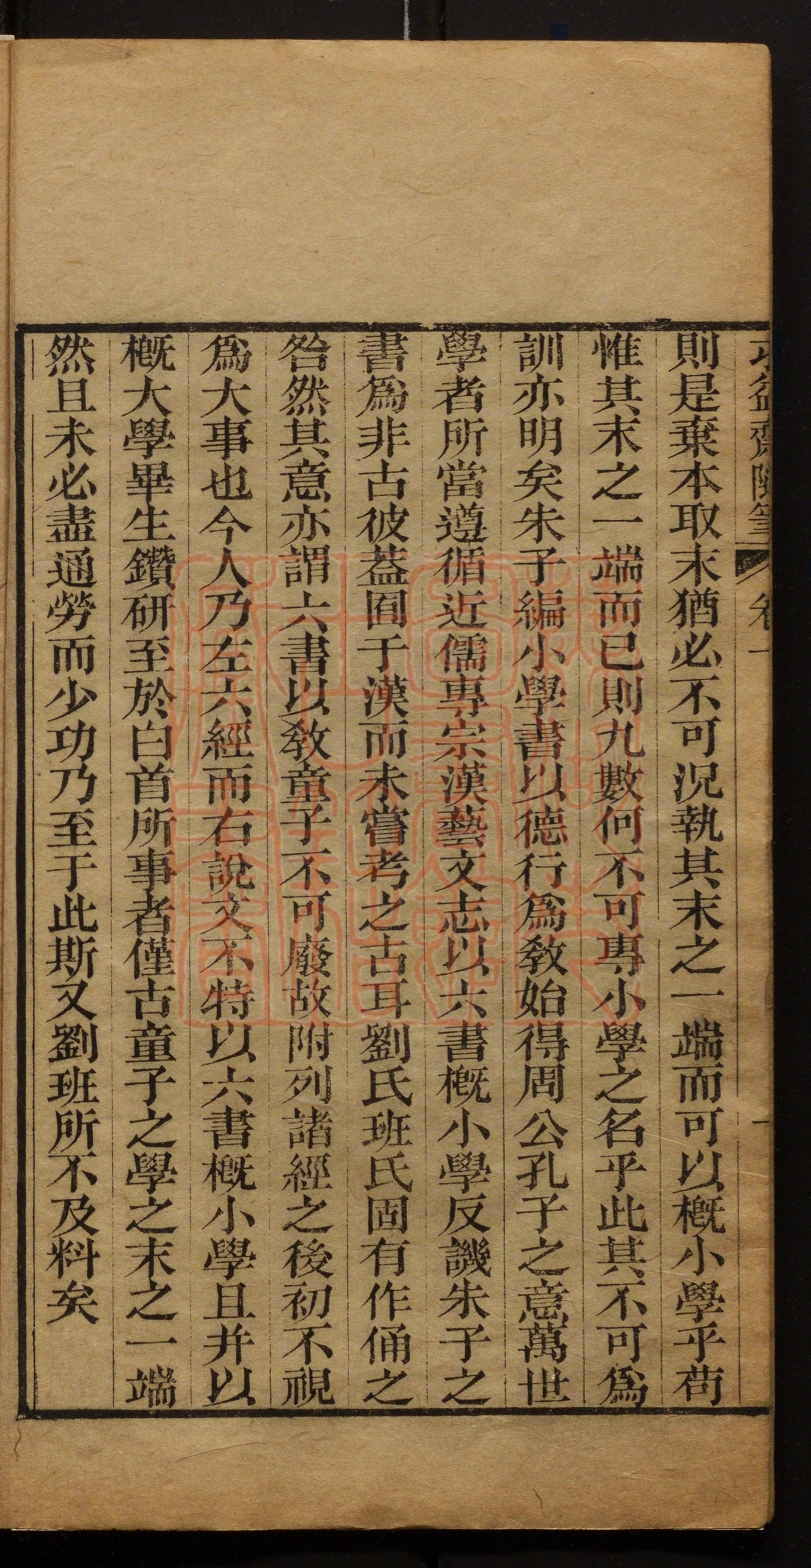 求益齋隨筆 卷一 一
則是棄本取末猶必不可況執其末之一端而可以概小學乎苟
惟其末之一端而已則九數何不可專小學之名乎此其不可爲
訓亦明矣朱子編小學書以德行爲教始得周公孔子之意萬世
學者所當遵循近儒專宗漢藝文志以六書概小學反譏朱子之
書爲非古彼蓋囿于漢而未嘗考之古耳劉氏班氏固有作俑之
咎然其意亦謂六書以敎童子不可廢故附列諸經之後初不視
爲大事也今人乃左六經而右說文不特以六書概小學且并以
概大學畢生鑽研至於白首所事者僅古童子之學之末之一端
然且未必盡通勞而少功乃至于此斯又劉班所不及料矣